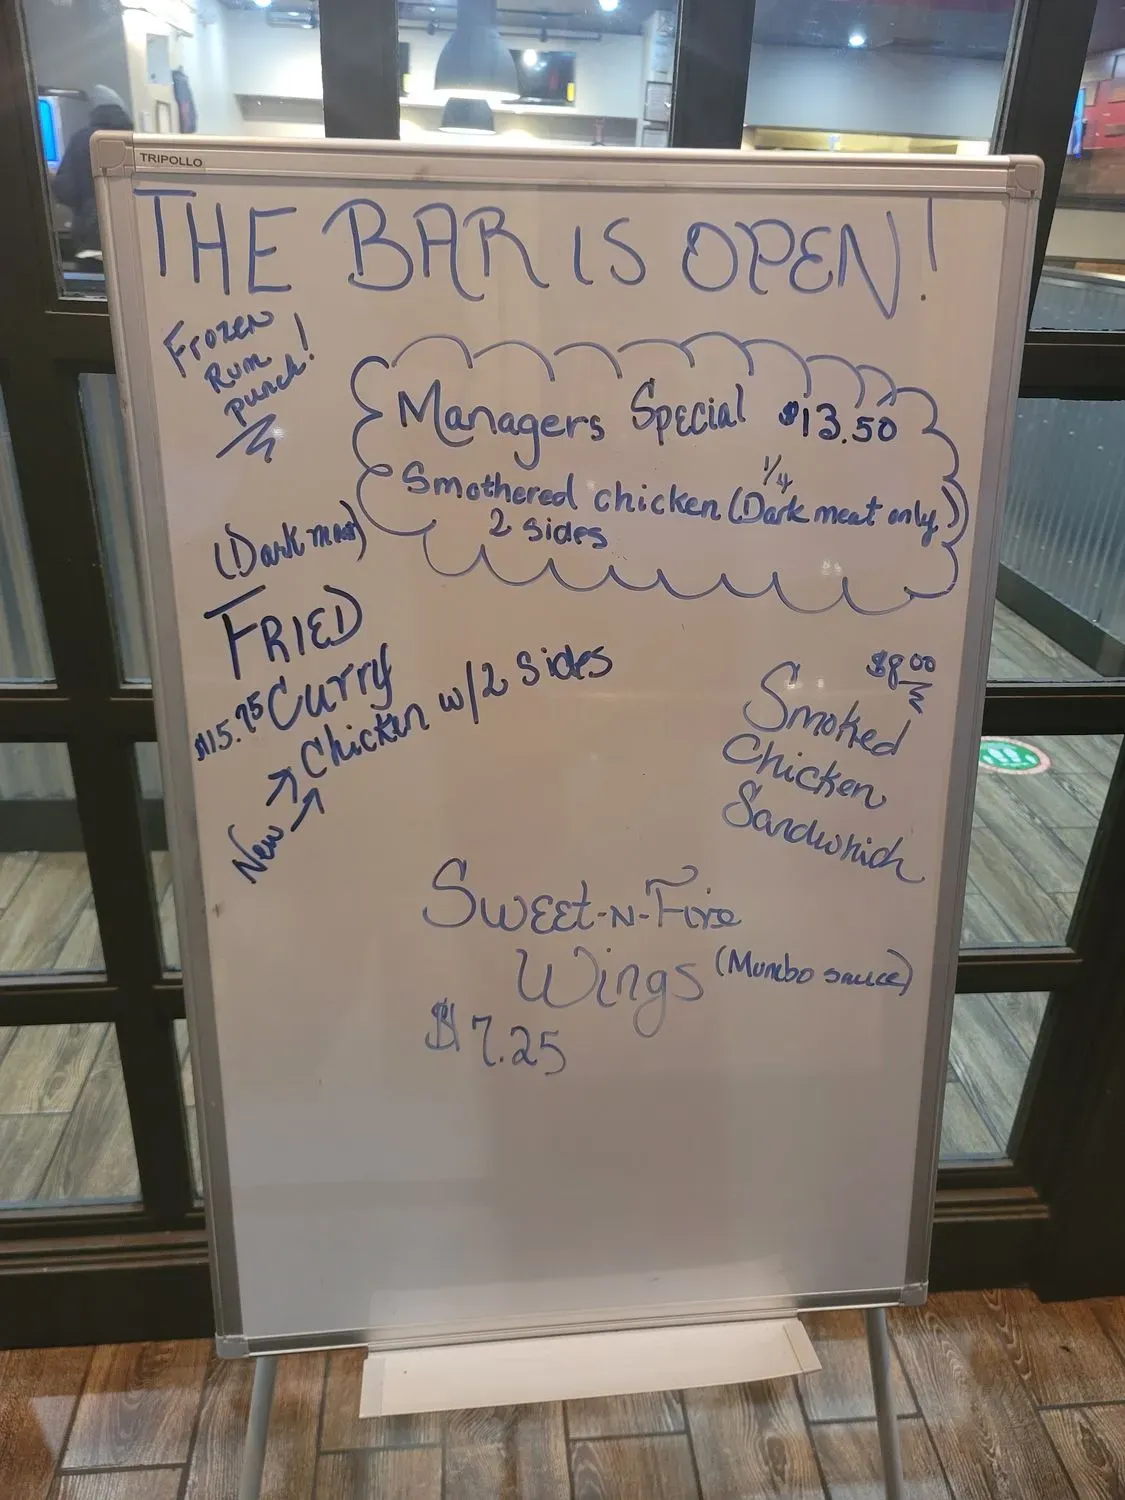 TRIPOLLO
THE BAR IS OPEN!
Frozen
Rum
punch!
Managers Special $13.50
1/4
Smothered chicken (Dark meat only)
2 sides
(Dark meat)
FRIED
$15.75 Curry
Chicken w/2 sides
New
$8.00
Smoked
Chicken
Sandwhich
Sweet-N-Fire
Wings (Mumbo sauce)
$7.25